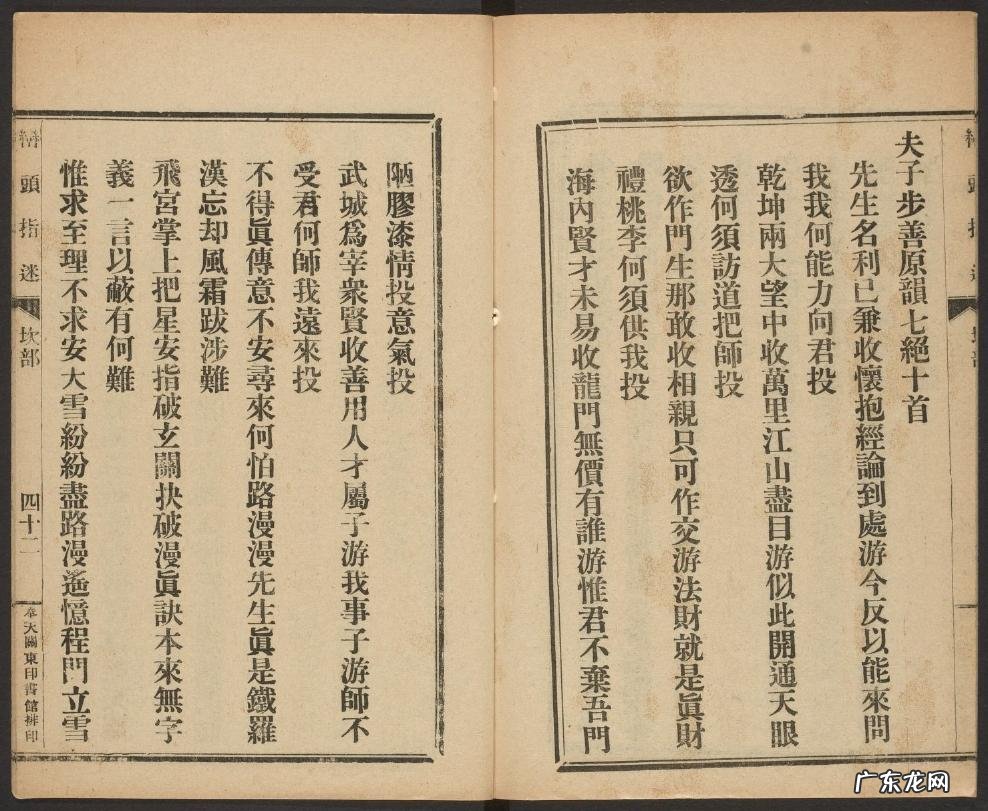 夫子步善原韻七絕十首
先生名利已兼收懷抱經論到處游今反以能來問
我我何能力向君投
乾坤兩大望中收萬里江山盡目游似此開通天眼
透何須訪道把師投
欲作門生那敢收相親只可作交游法財就是眞財
禮桃李何須供我投
海內賢才未易收龍門無價有誰游惟君不棄吾門
陋膠漆情投意氣投
武城爲宰衆賢收善用人才屬子游我事子游師不
受君何師我遠來投
不得眞傳意不安尋來何怕路漫漫先生眞是鐵羅
漢忘却風霜跋涉難
飛宮掌上把星安指破玄關抉破漫眞訣本來無字
義一言以蔽有何難
惟求至理不求安大雪紛紛盡路漫遙憶程門立雪
頭指迷
坎部
四十二
奉天關東印書館排印
广东龙网